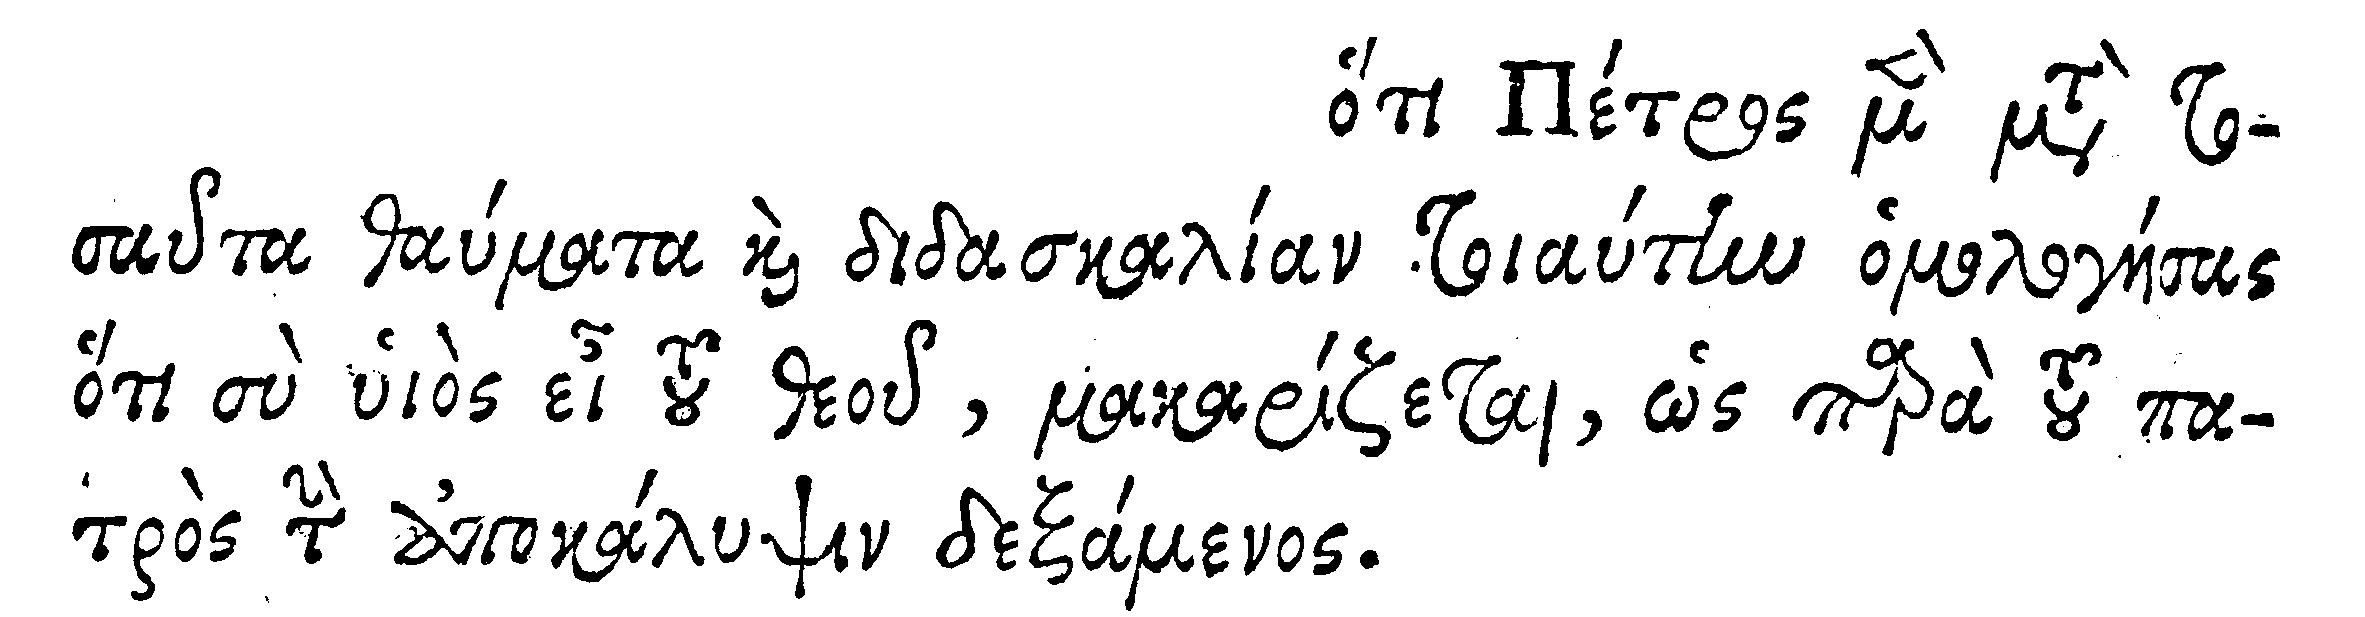 ὅτι Πέτρος μὲν μετὰ το-
σαῦτα θαύματα καὶ διδασκαλίαν τοιαύτην ὁμολογήσας
ὅτι σὺ υἱὸς εἶ τοῦ θεοῦ, μακαρίζεται, ὡς παρὰ τοῦ πα-
τρὸς τὴν ἀποκάλυψιν δεξάμενος.